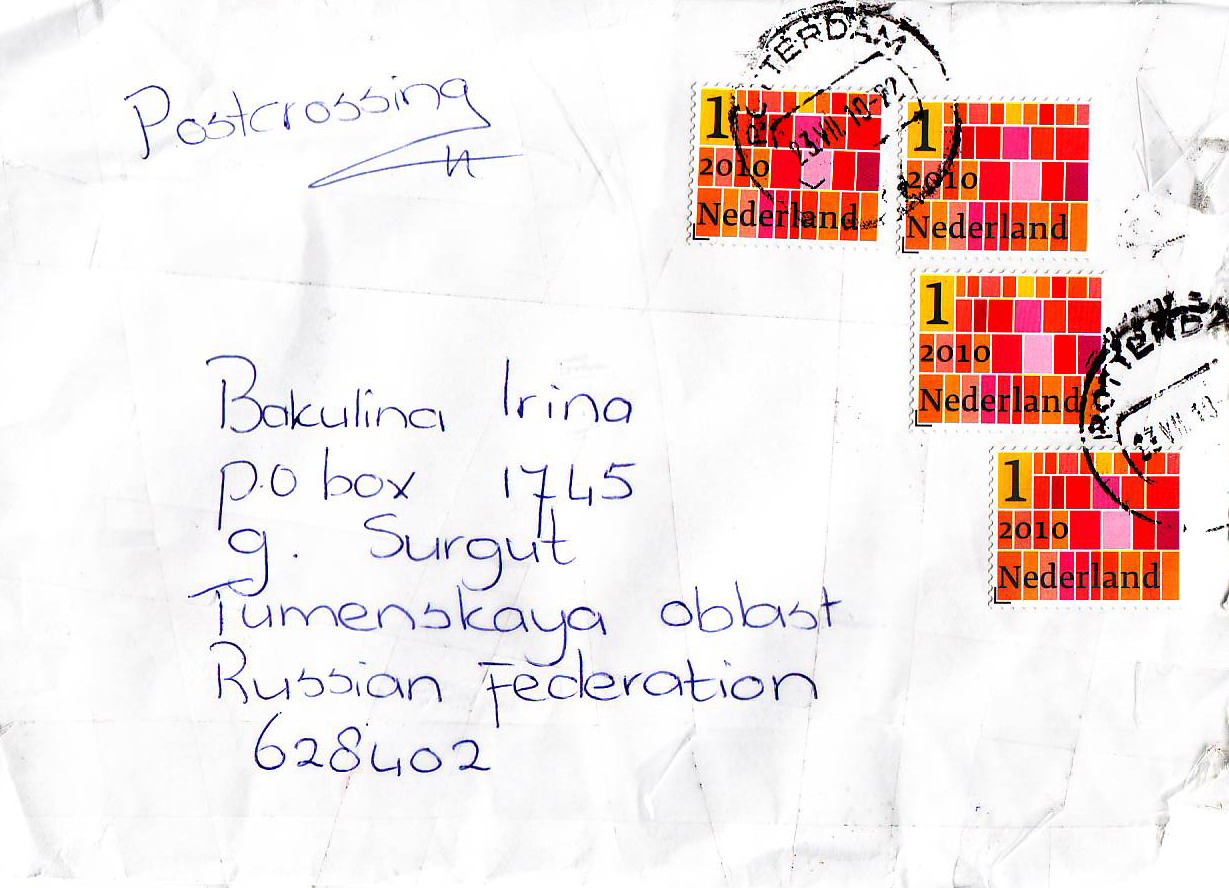 ROTTERDAM
23 VII 10-22
Postcrossing
1
2010
Nederland
1
2010
Nederland
1
2010
Nederland
ROTTERDA
23 VII 10-
1
2010
Nederland
Bakulina Irina
p.o box 1745
g. Surgut
Tumenskaya oblast
Russian Federation
628402